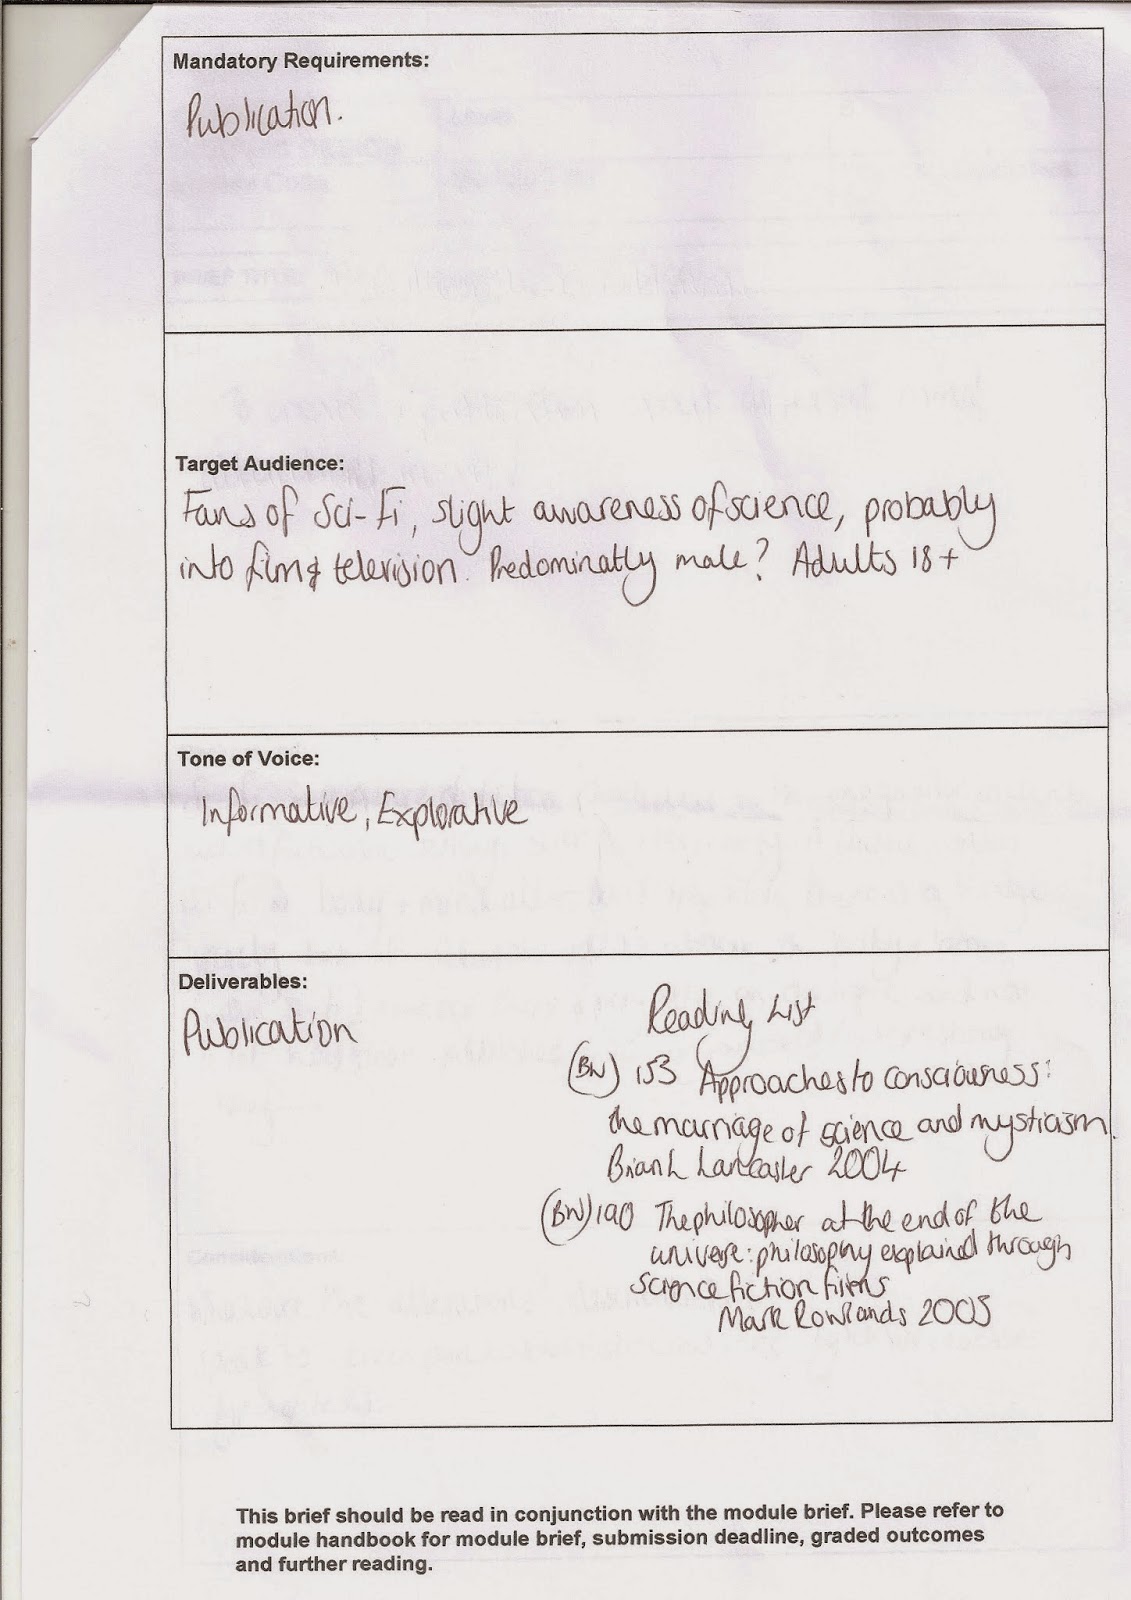 Mandatory Requirements:
Publication.
Target Audience:
Fans of Sci-Fi, slight awareness of science, probably
into film & television. Predominatly male? Adults 18+
Tone of Voice:
Informative, Explorative
Deliverables:
Publication
Reading List
(BN) 153 Approaches to consciousness:
the marriage of science and mysticism.
Brian L Lancaster 2004
(BN) 190 The philosopher at the end of the
universe: philosophy explained through
science fiction films
Mark Rowlands 2003
This brief should be read in conjunction with the module brief. Please refer to
module handbook for module brief, submission deadline, graded outcomes
and further reading.